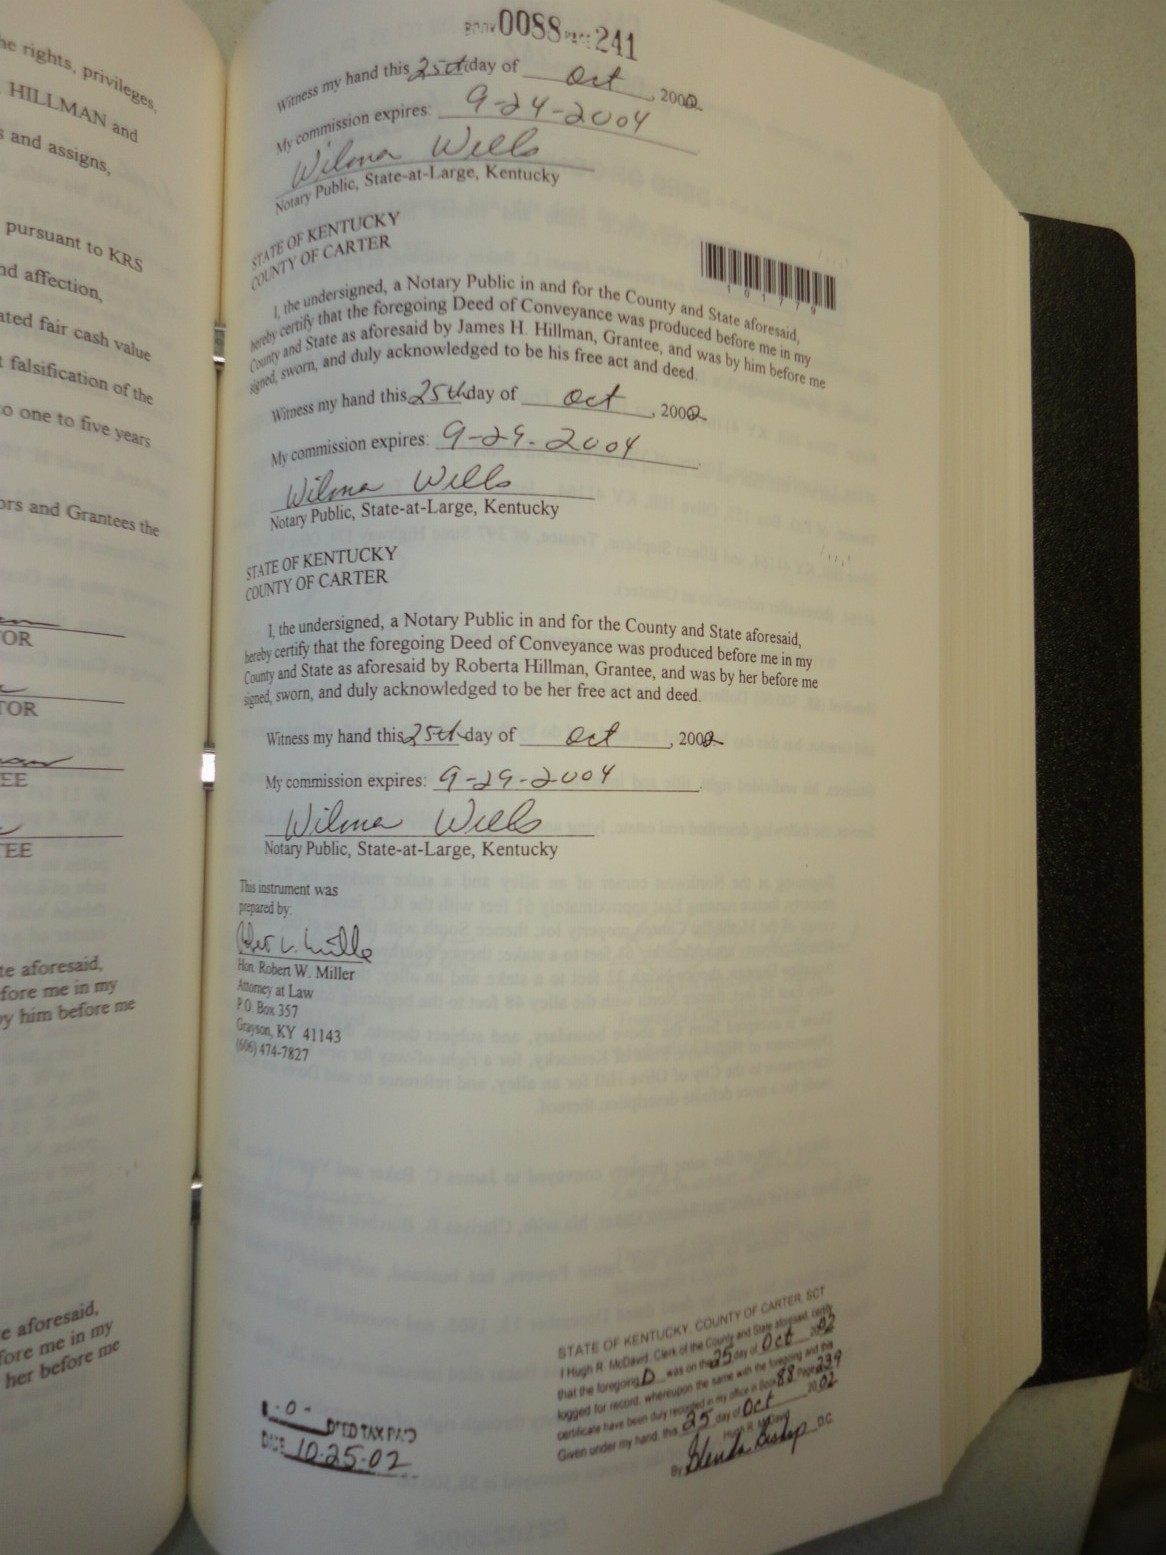 he rights, privileges,
HILLMAN and
s and assigns,
pursuant to KRS
nd affection,
ated fair cash value
t falsification of the
to one to five years
ors and Grantees the
TOR
TOR
EE
TEE
te aforesaid,
fore me in my
by him before me
e aforesaid,
fore me in my
her before me
BOOK 0088 PAGE 241
Witness my hand this 25th day of Oct, 2002
My commission expires: 9-24-2004
Wilma Wells
Notary Public, State-at-Large, Kentucky
STATE OF KENTUCKY
COUNTY OF CARTER
101779
I, the undersigned, a Notary Public in and for the County and State aforesaid,
hereby certify that the foregoing Deed of Conveyance was produced before me in my
County and State as aforesaid by James H. Hillman, Grantee, and was by him before me
signed, sworn, and duly acknowledged to be his free act and deed.
Witness my hand this 25th day of Oct, 2002
My commission expires: 9-29-2004
Wilma Wells
Notary Public, State-at-Large, Kentucky
STATE OF KENTUCKY
COUNTY OF CARTER
I, the undersigned, a Notary Public in and for the County and State aforesaid,
hereby certify that the foregoing Deed of Conveyance was produced before me in my
County and State as aforesaid by Roberta Hillman, Grantee, and was by her before me
signed, sworn, and duly acknowledged to be her free act and deed.
Witness my hand this 25th day of Oct, 2002
My commission expires: 9-29-2004
Wilma Wells
Notary Public, State-at-Large, Kentucky
This instrument was
prepared by:
Robert W. Miller
Hon. Robert W. Miller
Attorney at Law
P.O. Box 357
Grayson, KY 41143
(606) 474-7827
STATE OF KENTUCKY, COUNTY OF CARTER, SCT
I Hugh R. McDavid, Clerk of the County and State aforesaid, certify
that the foregoing D was on the 25 day of Oct 2002
logged for record, whereupon the same with the foregoing and this
certificate have been duly recorded in my office in Book 88 Page 239
Given under my hand, this 25 day of Oct 2002
Hugh R. McDavid
By Glenda Bishop D.C.
-0- DEED TAX PAID
DATE 10-25-02